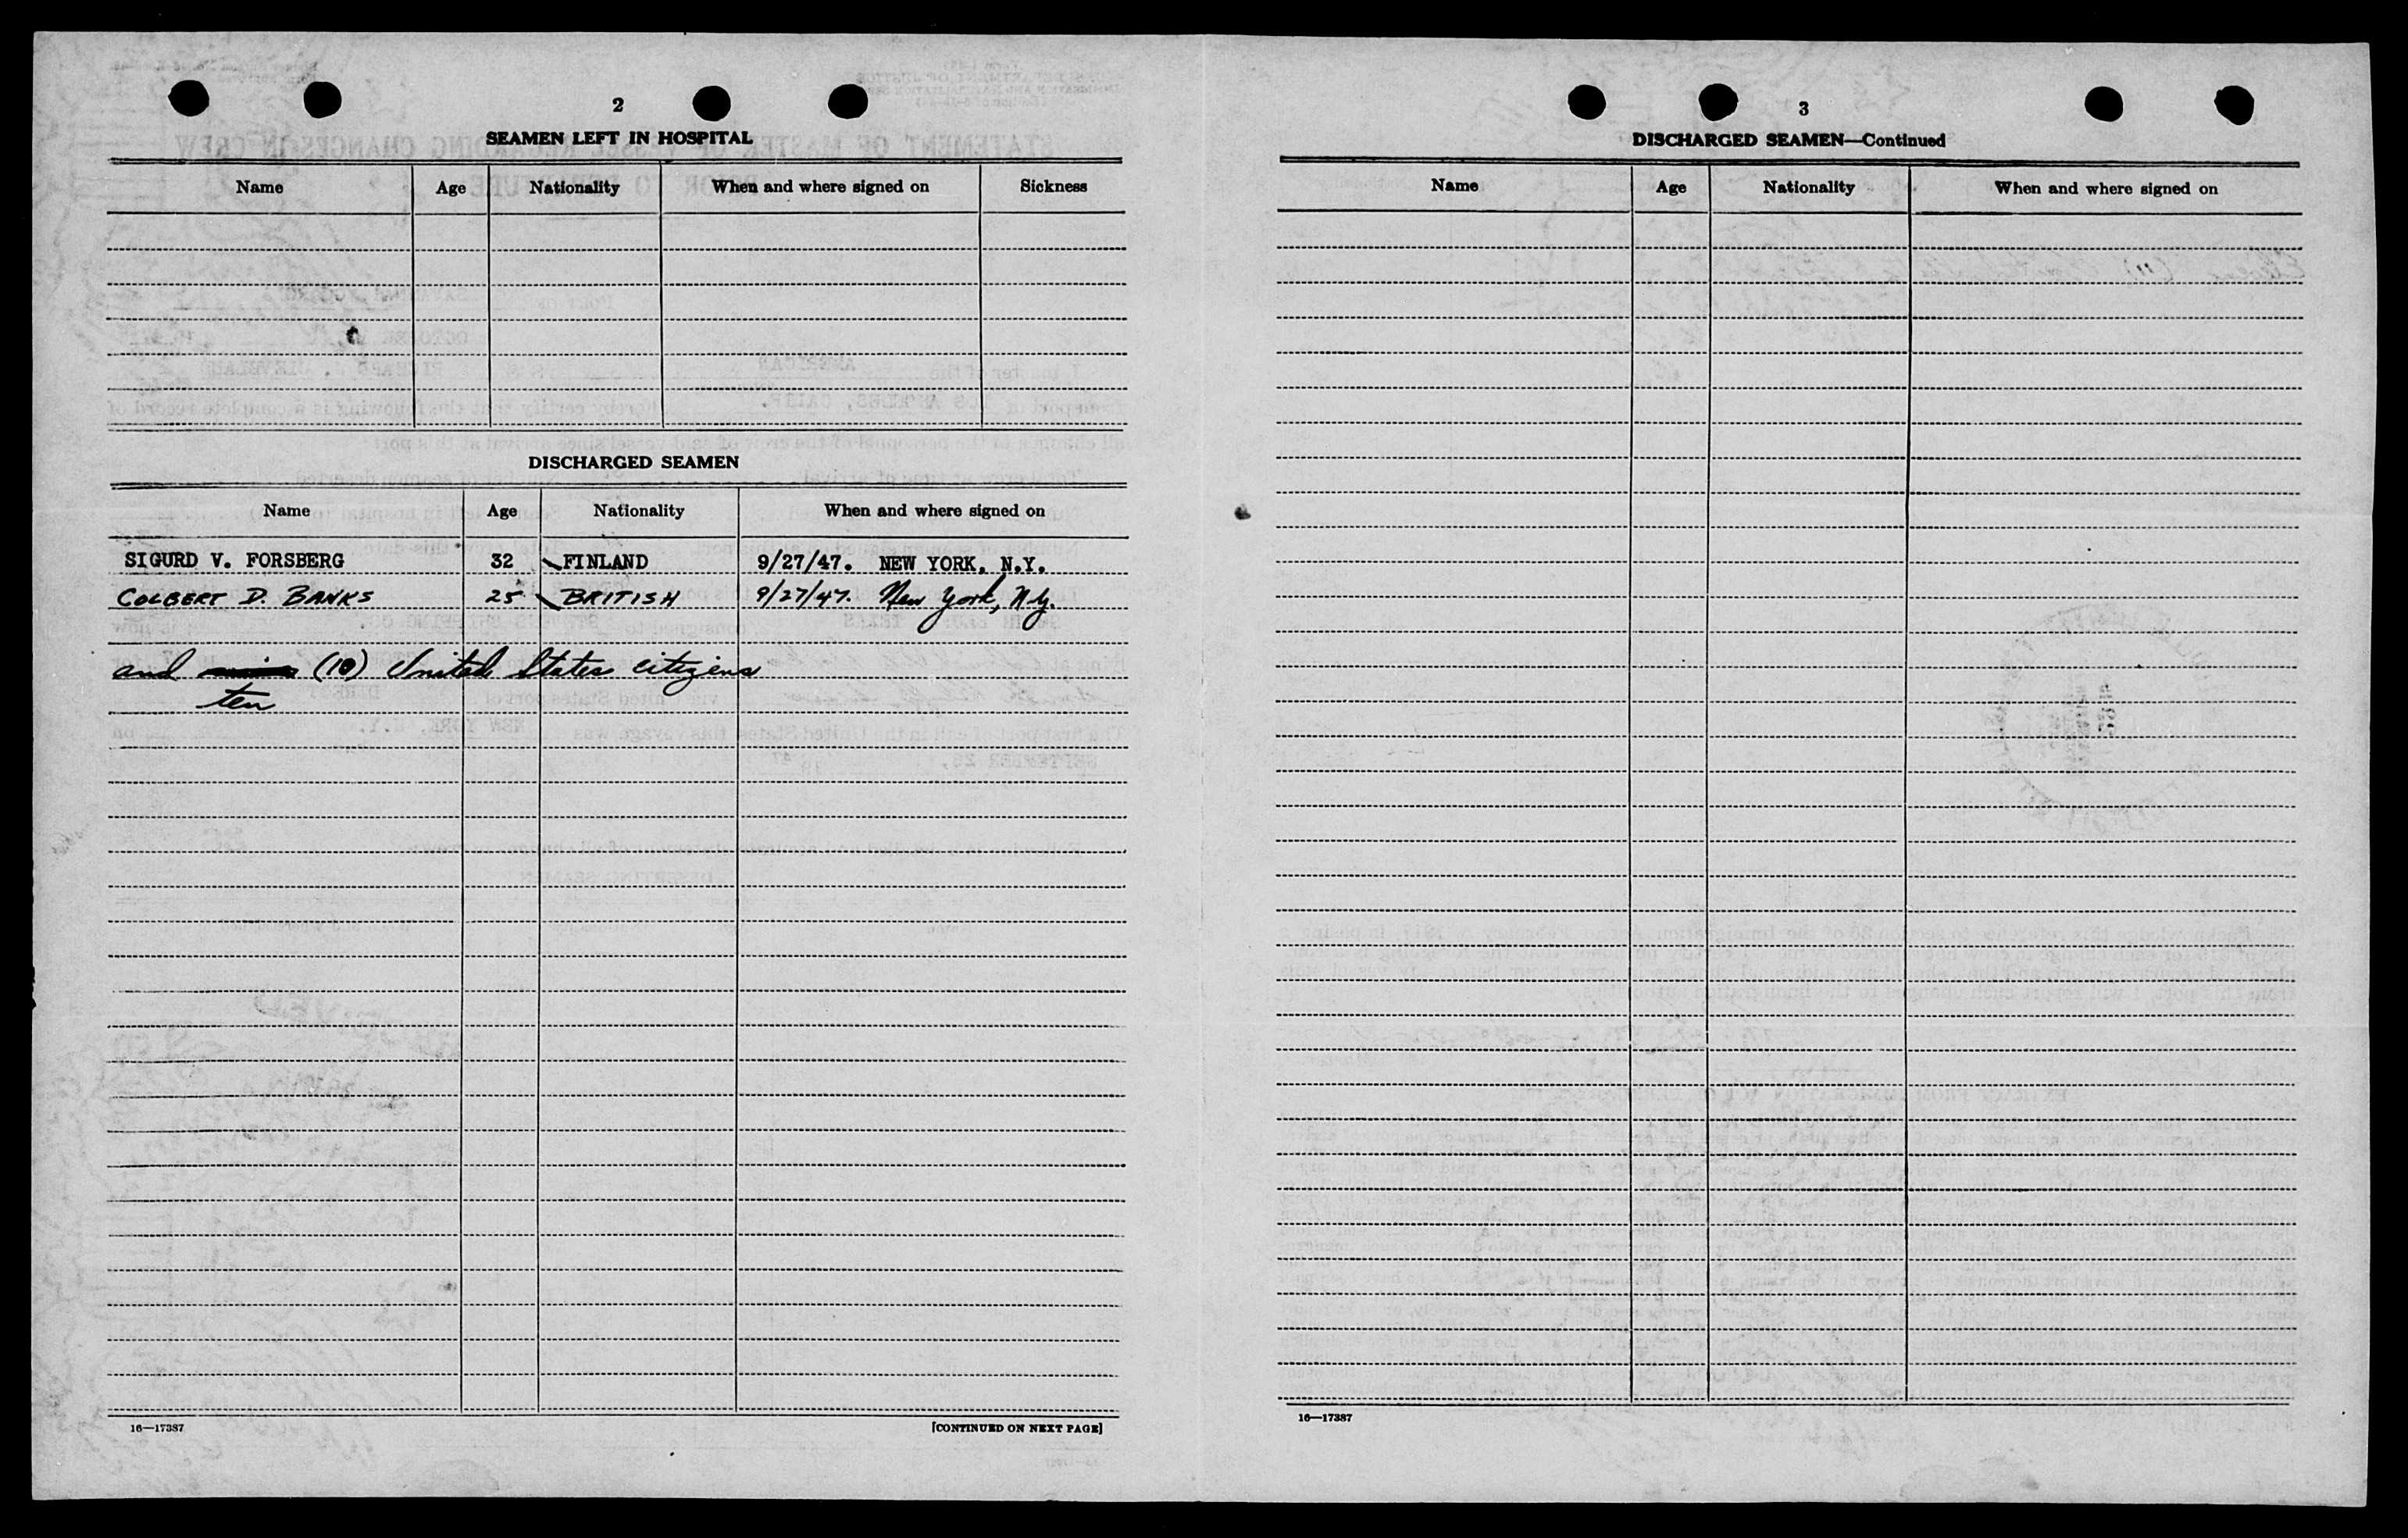 2
SEAMEN LEFT IN HOSPITAL
Name Age Nationality When and where signed on Sickness
DISCHARGED SEAMEN
Name Age Nationality When and where signed on
SIGURD V. FORSBERG 32 FINLAND 9/27/47. NEW YORK, N.Y.
COLBERT D. BANKS 25 BRITISH 9/27/47. New York, N.Y.
and (10) United States citizens
ten
16—17387 [CONTINUED ON NEXT PAGE]
3
DISCHARGED SEAMEN—Continued
Name Age Nationality When and where signed on
16—17387